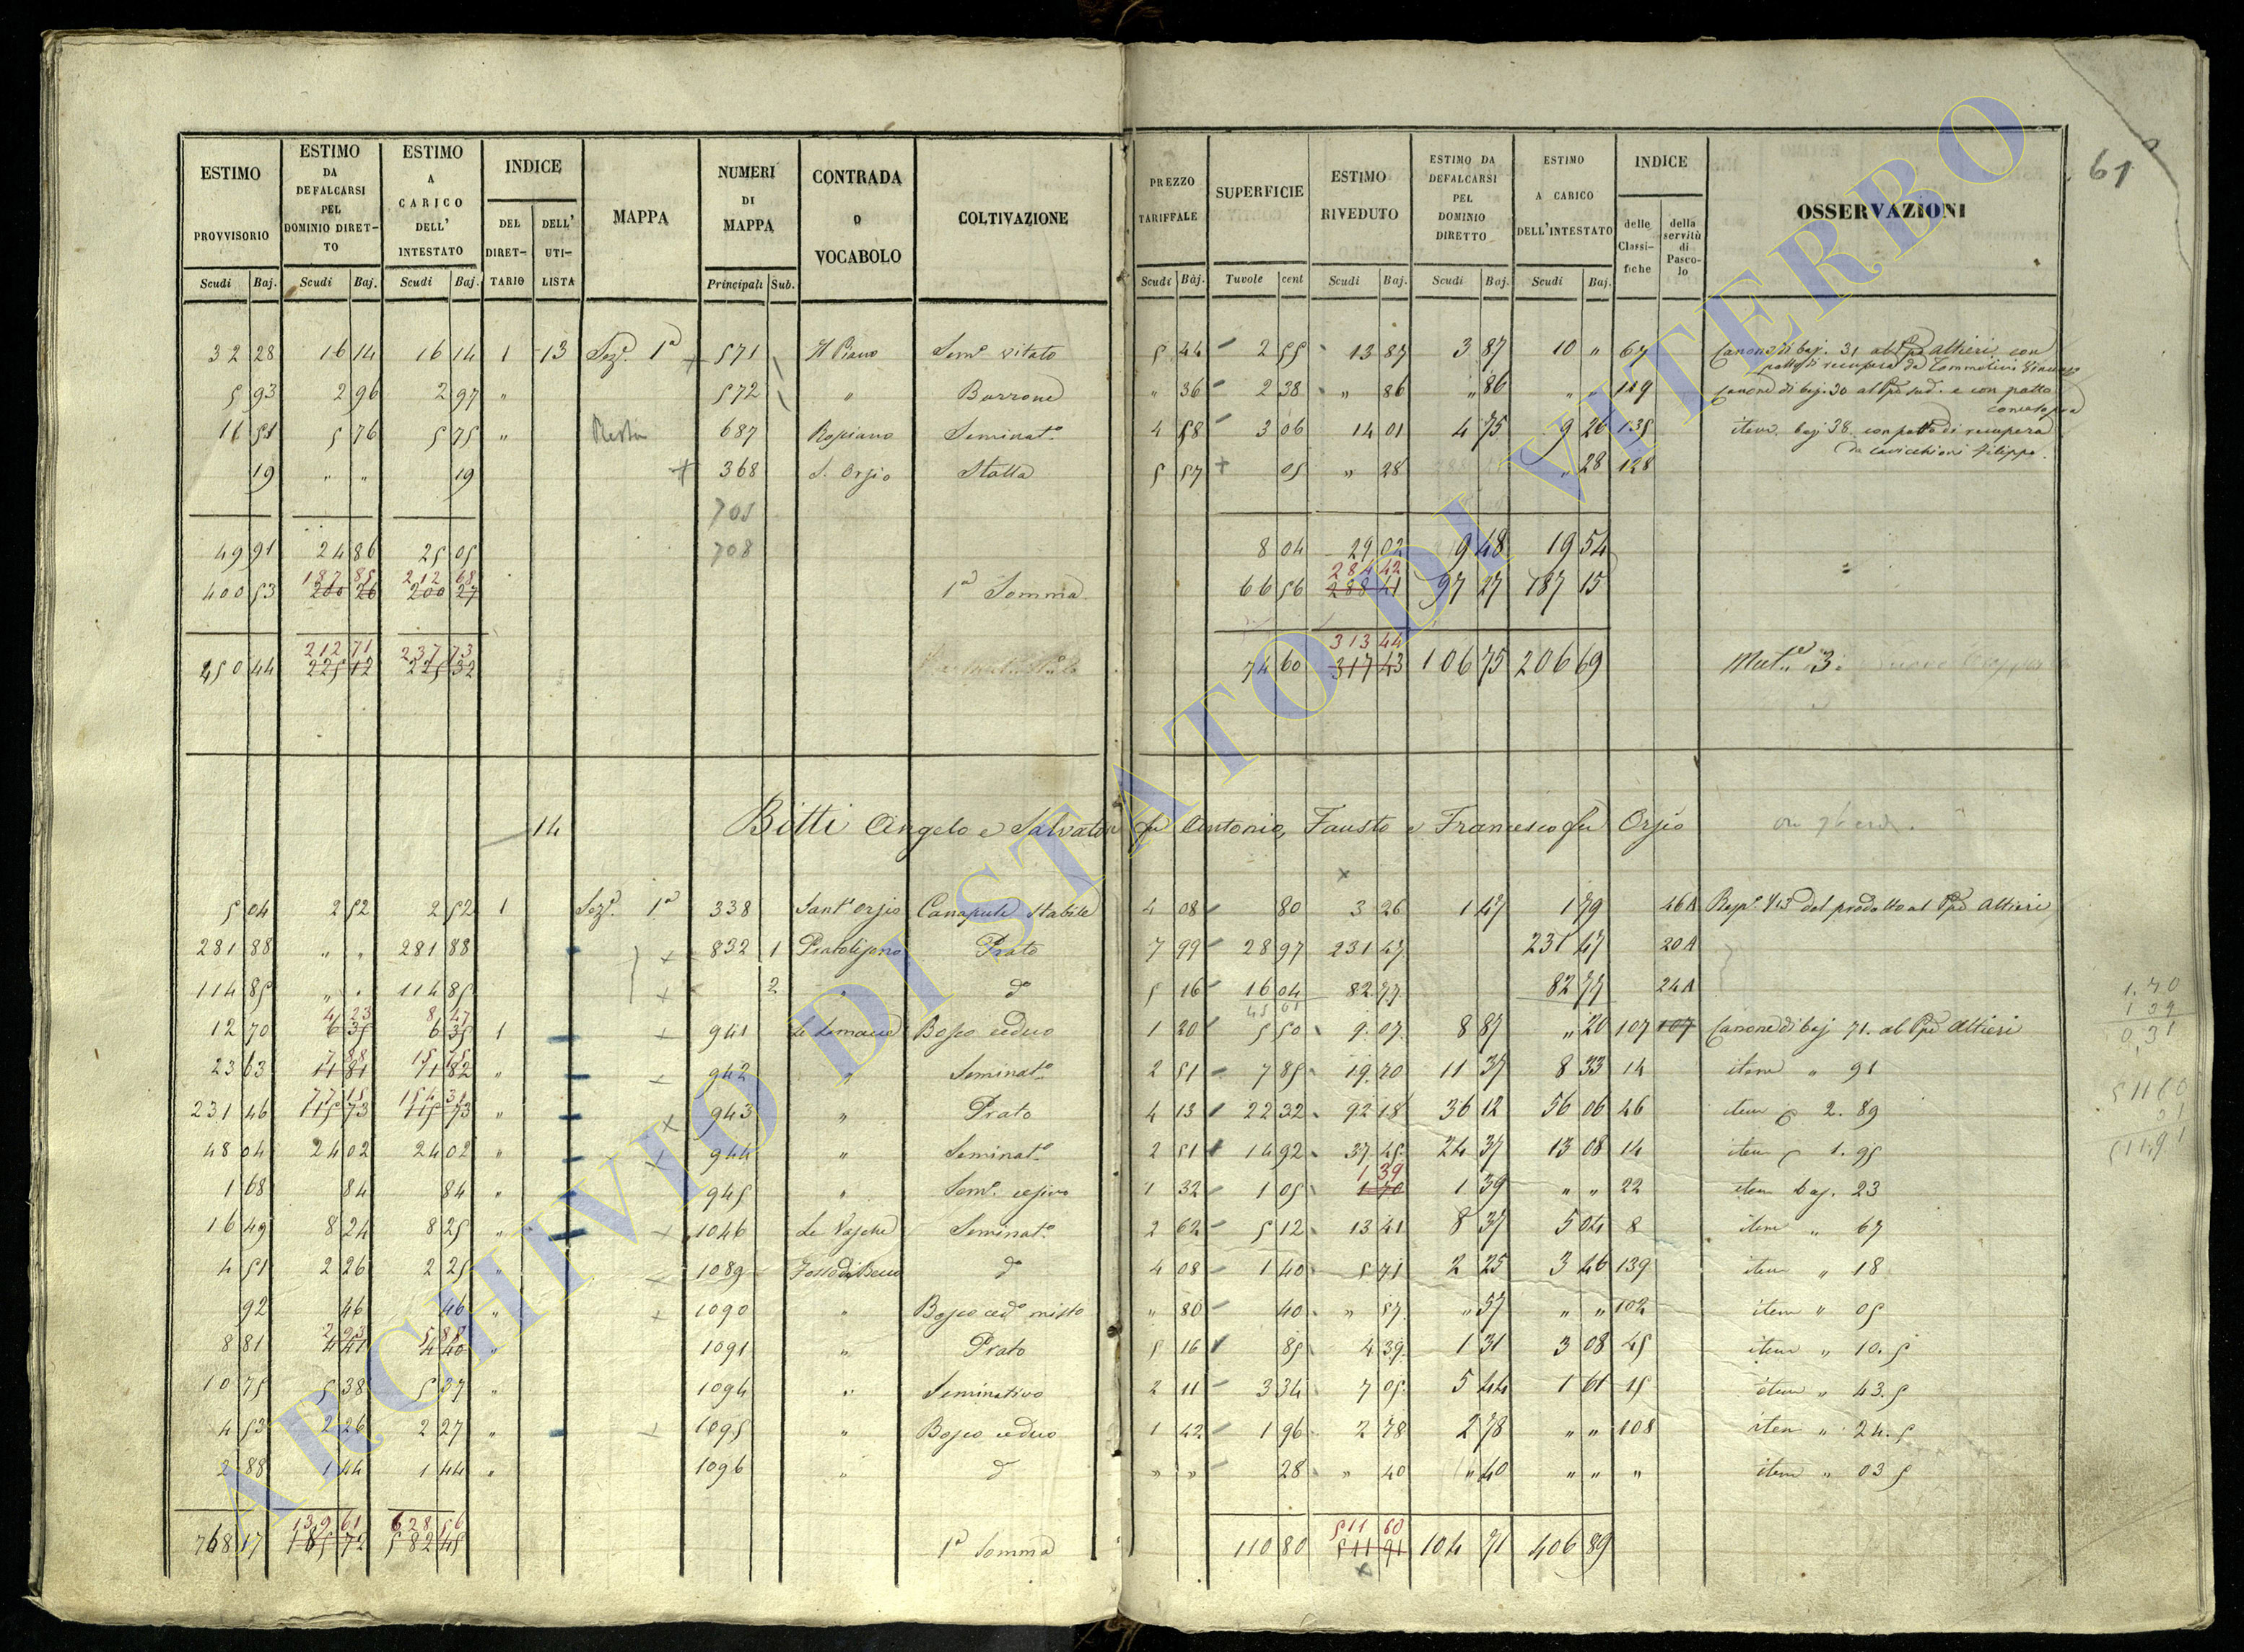 61
ESTIMO PROVVISORIO Scudi Baj.
ESTIMO DA DEFALCARSI PEL DOMINIO DIRET-TO Scudi Baj.
ESTIMO A CARICO DELL' INTESTATO Scudi Baj.
INDICE DEL DIRET-TARIO DELL' UTI-LISTA
MAPPA
NUMERI DI MAPPA Principali Sub.
CONTRADA O VOCABOLO
COLTIVAZIONE
PREZZO TARIFFALE Scudi Baj.
SUPERFICIE Tavole cent
ESTIMO RIVEDUTO Scudi Baj.
ESTIMO DA DEFALCARSI PEL DOMINIO DIRETTO Scudi Baj.
ESTIMO A CARICO DELL'INTESTATO Scudi Baj.
INDICE delle Classi-fiche della servitù di Pasco-lo
OSSERVAZIONI
32 28 16 14 16 14 1 13 Sez.e 1a + 571 Il Piano Sem.o vitato 5 44 2 55 13 87 3 87 10 " 67 Canone di baj. 31 al Ppe Altieri con
patto di recupera da
5 93 2 96 2 97 " 572 " Burrone " 36 2 38 " 86 " 86 " " 149 canone di baj. 30 al Ppe sud. e con patto
come sopra
11 51 5 76 5 75 " 687 Ropiano Seminat.o 4 58 3 06 14 01 4 75 9 26 135 item baj 38 con patto di recupera
da Cavicchioni Filippo.
19 " " 19 + 368 S. Orsio Stalla 5 57 + 05 " 28 " 28 128
705
49 91 24 86 25 05 708 8 04 29 02 9 48 19 54
187 85 212 68 284 42
400 53 200 26 200 27 1a Somma 66 56 288 41 97 27 187 15
212 71 237 73 313 44
450 44 225 12 225 32 74 60 317 43 106 75 206 69 Mut.a 3.
14 Bitti Angelo e Salvatore fu Antonio, Fausto e Francesco fu Orsio
5 04 2 52 2 52 1 Sez.e 1a 338 Sant'Orsio Canapule Stabile 4 08 80 3 26 1 47 1 79 46A Risp. 1/13 del prodotto al Ppe Altieri
281 88 " " 281 88 + 832 1 Prato 7 99 28 97 231 47 231 47 20A
114 85 " " 114 85 + 2 " do 5 16 16 04 82 77 82 77 24A
4 23 8 47 45 01
12 70 6 35 6 35 1 + 941 Bosco ceduo 1 20 5 50 9 07 8 87 " 20 107 107 Canone di baj 71. al Ppe Altieri
7 88 15 75
23 63 11 81 11 82 " + 942 " Seminat.o 2 51 7 85 19 70 11 37 8 33 14 item " 91
77 15 154 31
231 46 115 73 115 73 " + 943 " Prato 4 13 22 32 92 18 36 12 56 06 46 item 2. 89
48 04 24 02 24 02 " + 944 " Seminat.o 2 51 14 92 37 45 24 37 13 08 14 item 1. 95
1 39
1 68 84 84 " 945 " Sem.o cesivo 1 32 1 05 1 70 1 39 " " 22 item baj. 23
16 49 8 24 8 25 " + 1046 Le Vasche Seminat.o 2 62 5 12 13 41 8 37 5 04 8 item " 67
4 51 2 26 2 25 " 1089 do 4 08 1 40 5 71 2 25 3 46 139 item " 18
92 46 46 " + 1090 " Bosco ced.o misto " 80 40 " 57 " 57 " " 102 item " 05
2 93 5 88
8 81 4 41 4 40 " 1091 " Prato 5 16 85 4 39 1 31 3 08 45 item " 10. 5
10 75 5 38 5 37 " 1094 " Seminativo 2 11 3 34 7 05 5 44 1 61 15 item " 43. 5
4 53 2 26 2 27 " 1095 " Bosco ceduo 1 42 1 96 2 78 2 78 " " 108 item " 24. 5
2 88 1 44 1 44 " 1096 " do " " 28 " 40 " 40 " " " item " 03 5
139 61 628 56 511 60
768 17 185 72 582 45 1a Somma 110 80 511 91 104 71 406 89
1.70
1 39
0,31
511 60
31
511.91
ARCHIVIO DI STATO DI VITERBO